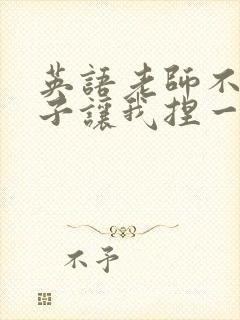 英語老師不
子讓我捏一
不予